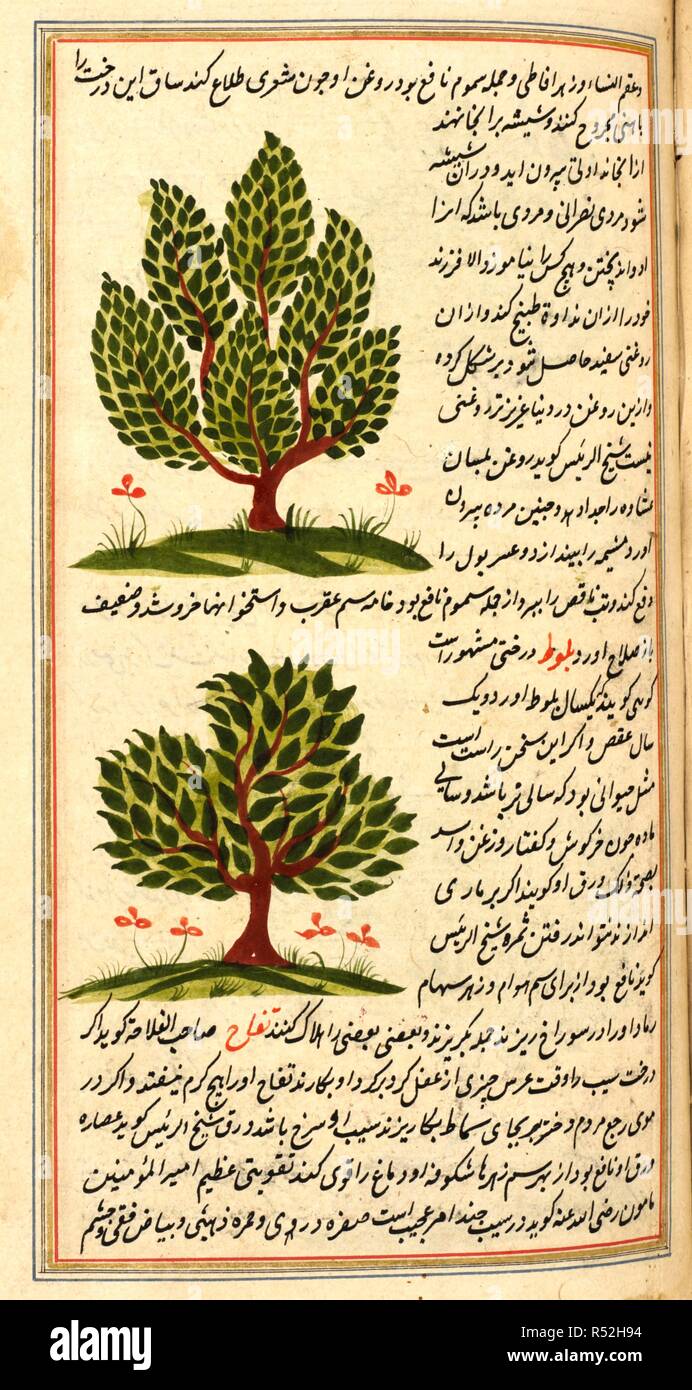 وعقم النساء و زهر افاعی و جمله سموم نافع بود روغن او چون مشعری طلاع کند ساق این درخت را
باهنی مجروح کنند و شیشه بر انجا نهند
از انجا نداوتی بیرون اید و در ان شیشه
شود مردی نصرانی و مروی باشد که انرا
داند پختن و هیچ کس را نیاموزد الا فرزند
خود را از ان نداوة طبیخ کند و از ان
روغنی سفید حاصل شود بر شکل کرده
و ازین روغن در دنیا عزیزتر روغنی
نیست شیخ الرئیس کوید روغن بلسان
غشاوه را جدا دهد و جنین مرده بیرون
اورد مشیمه را بیندازد و عسر بول را
دفع کند و تب ناقص را ببرد از جمله سموم نافع بود خامه سم عقرب و استخوانها خرد شد و ضعیف
باز صلاح اورد بلوط درختی مشهور است
کوهی کویند یکسال بلوط اورد و یک
سال عفص و اکر این سخن راست است
مثل حیوانی بود که سالی نر باشد و سالی
ماده چون خرکوش و کفتار و زغن والله
بصحة ذلک ورق او کویند اکر بر ماری
اندازند نتواند رفتن ثمره شیخ الرئیس
کوید نافع بود از برای سم هوام و زهر سهام
رماد او را در سوراخ ریزند جمله بکریزند و بعضی بعضی را هلاک کنند تفاح صاحب الفلاحة کوید اکر
درخت سیب را وقت غرس چیزی از عنصل کرد برکرد او بکارند تفاح او را هیچ کرم نیفتد و اکر در
موی رجع مردم و دختر بجای سماط بکار ریزند سیب او سرخ باشد ورق شیخ الرئیس کوید عصاره
ورق او نافع بود از بهر سم زهرها شکوفه او دماغ را قوی کند تقویتی عظیم امیر المؤمنین
مامون رضی الله عنه کوید در سیب چند امر عجیب است صفره در دی و حمره ذهبی و بیاض فضی و چشم
alamy
alamy
Image ID: R52H94
www.alamy.com